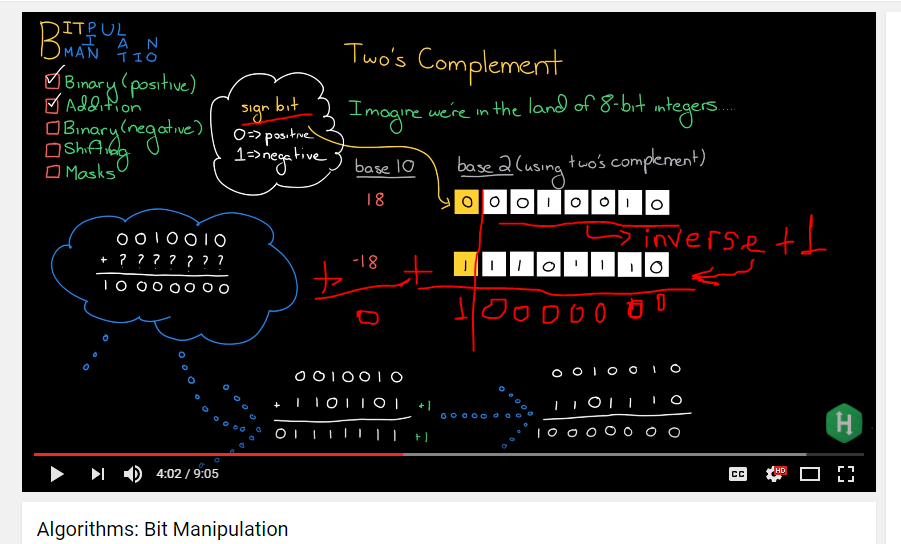 BITPUL
I A N
MAN TIO
Two's Complement
Binary (positive)
Addition
Binary (negative)
Shifting
Masks
sign bit
0=> positive
1=> negative
Imagine we're in the land of 8-bit integers.....
base 10
base 2 (using two's complement)
18
0 0 0 1 0 0 1 0
inverse +1
-18
1 1 1 0 1 1 1 0
+ +
0
1 0 0 0 0 0 0 0
0 0 1 0 0 1 0
+ ? ? ? ? ? ? ?
1 0 0 0 0 0 0 0
0 0 1 0 0 1 0
+ 1 1 0 1 1 0 1 +1
0 1 1 1 1 1 1 1 +1
0 0 1 0 0 1 0
1 1 0 1 1 1 0
1 0 0 0 0 0 0 0
H
4:02 / 9:05
CC
HD
Algorithms: Bit Manipulation